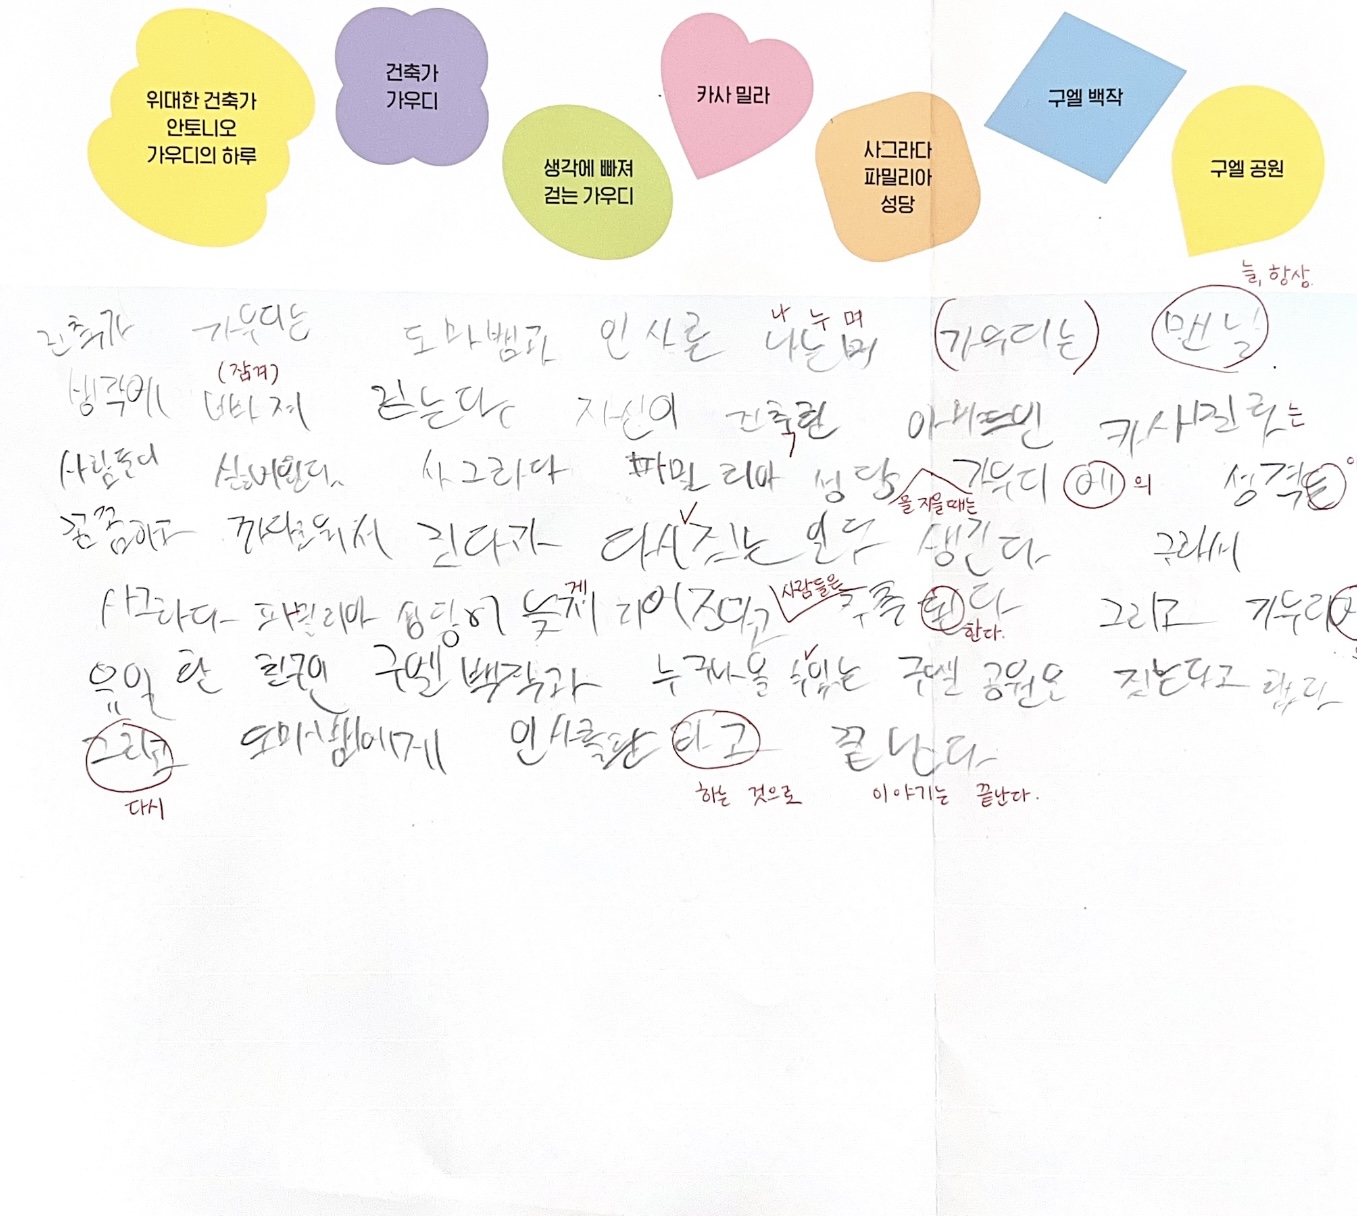 위대한 건축가
안토니오
가우디의 하루
건축가
가우디
생각에 빠져
걷는 가우디
카사 밀라
사그라다
파밀리아
성당
구엘 백작
구엘 공원
늘, 항상
나 누 며
건축가 가우디는 도마뱀과 인사를 나눈며 (가우디는) 맨날
(잠겨)
생각에 빠져 걷는다. 자신이 건축한 카사밀라는
사람들이 싫어한다. 사그라다 파밀리아 성당 가우디에 의 성격
을 지을 때는
꼼꼼하고 까다로워서 짓다가 다시 짓는 일도 생긴다. 그래서
게
사람들은
사그라다 파밀리아 성당이 늦게 추측 된다 그리고
한다.
유일한 친구인 구엘 백작과 누구나 올 수있는 구엘 공원도
그리고 도마뱀에게 인사 하고 끝난다
다시
하는 것으로 이야기는 끝난다.